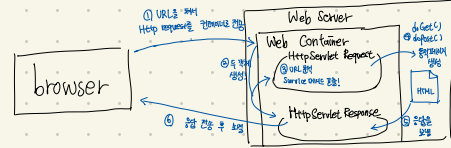 ① URL을 통해
Http request를 컨테이너로 전송
Web Server
Web Container
HttpServlet Request
② 두 객체
생성!
③ URL 분석
Service 메서드 호출!
④ doGet()
doPost()
동적페이지
생성
browser
HTML
HttpServlet Response
⑤ 응답을
보냄
⑥ 응답 전송 후 소멸